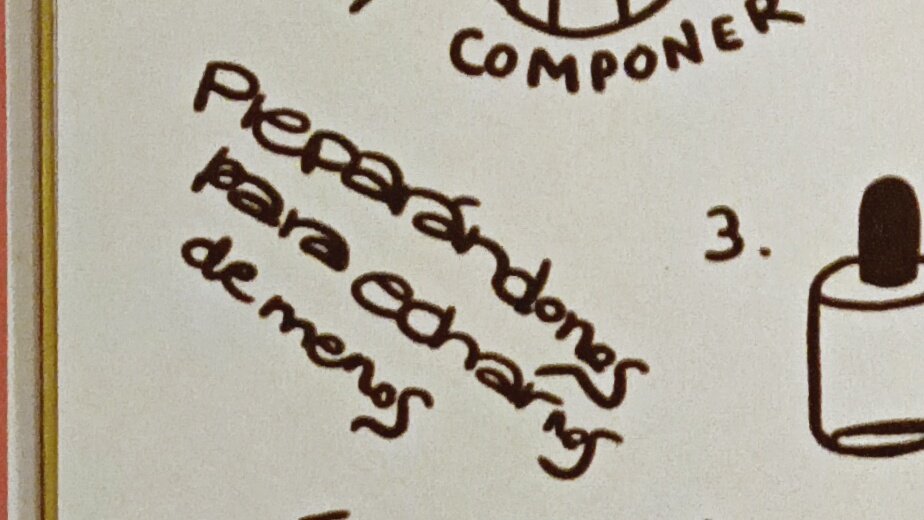 COMPONER
Preparándonos
para echarnos
de menos
3.